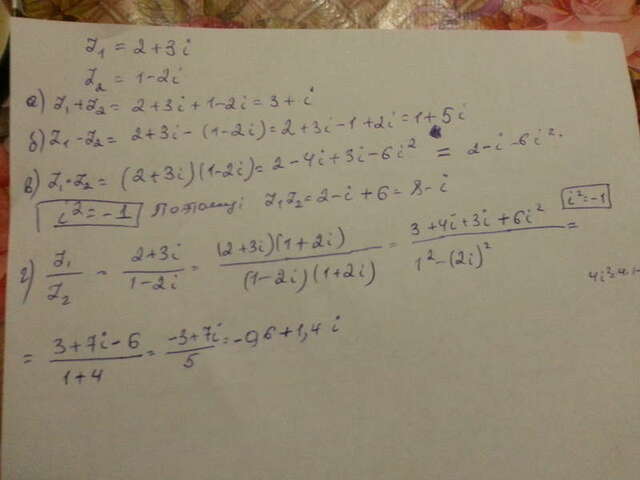 z₁ = 2+3i
z₂ = 1-2i
а) z₁+z₂ = 2+3i+1-2i = 3+i
б) z₁-z₂ = 2+3i-(1-2i) = 2+3i-1+2i = 1+5i
в) z₁·z₂ = (2+3i)(1-2i) = 2-4i+3i-6i² = 2-i-6i².
i² = -1 Потому: z₁z₂ = 2-i+6 = 8-i
г) z₁/z₂ = (2+3i)/(1-2i) = (2+3i)(1+2i)/(1-2i)(1+2i) = (3+4i+3i+6i²)/(1²-(2i)²) = i²=-1
= (3+7i-6)/(1+4) = (-3+7i)/5 = -0,6+1,4i